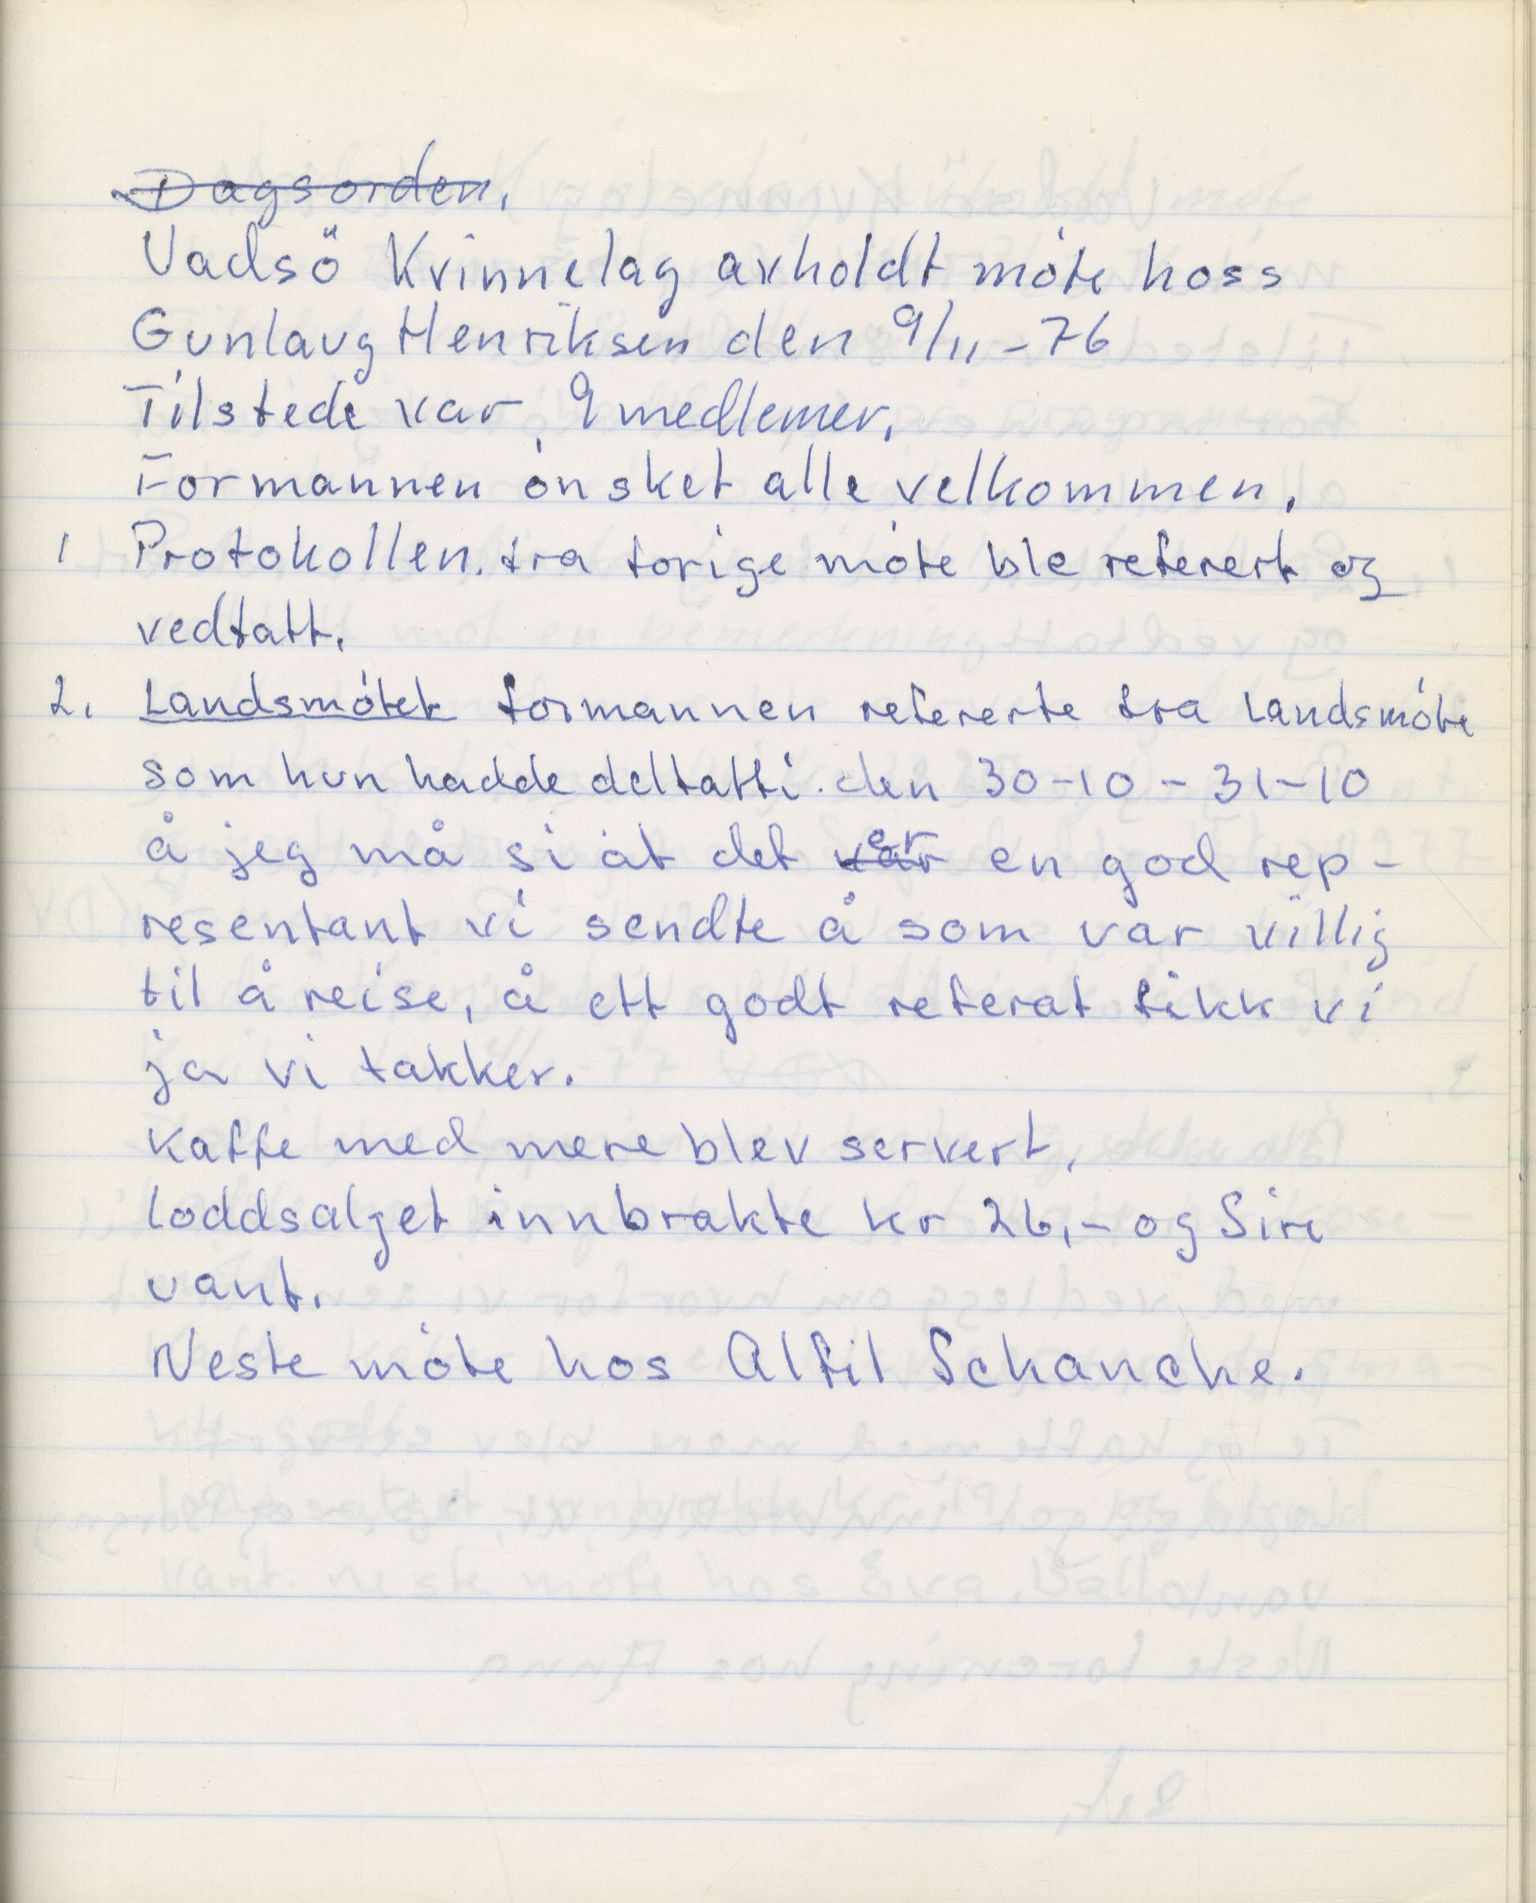 Dagsorden.
Vadsö Kvinnelag avholdt møte hoss
Gunlaug Henriksen den 9/11-76
Tilstede var 9 medlemer.
Formannen ønsket alle velkommen.
1 Protokollen. fra forige møte ble referert og
vedtatt.
2. Landsmøtet formannen refererte fra Landsmøte
som hun hadde deltatt i. den 30-10-31-10
å jeg må si at det var er en god rep-
resentant vi sendte å som var villig
til å reise, å ett godt referat fikk vi
ja vi takker.
Kaffe med mere blev servert.
loddsalget innbrakte kr 26,- og Siri
vant.
Neste møte hos Alfil Schanche.